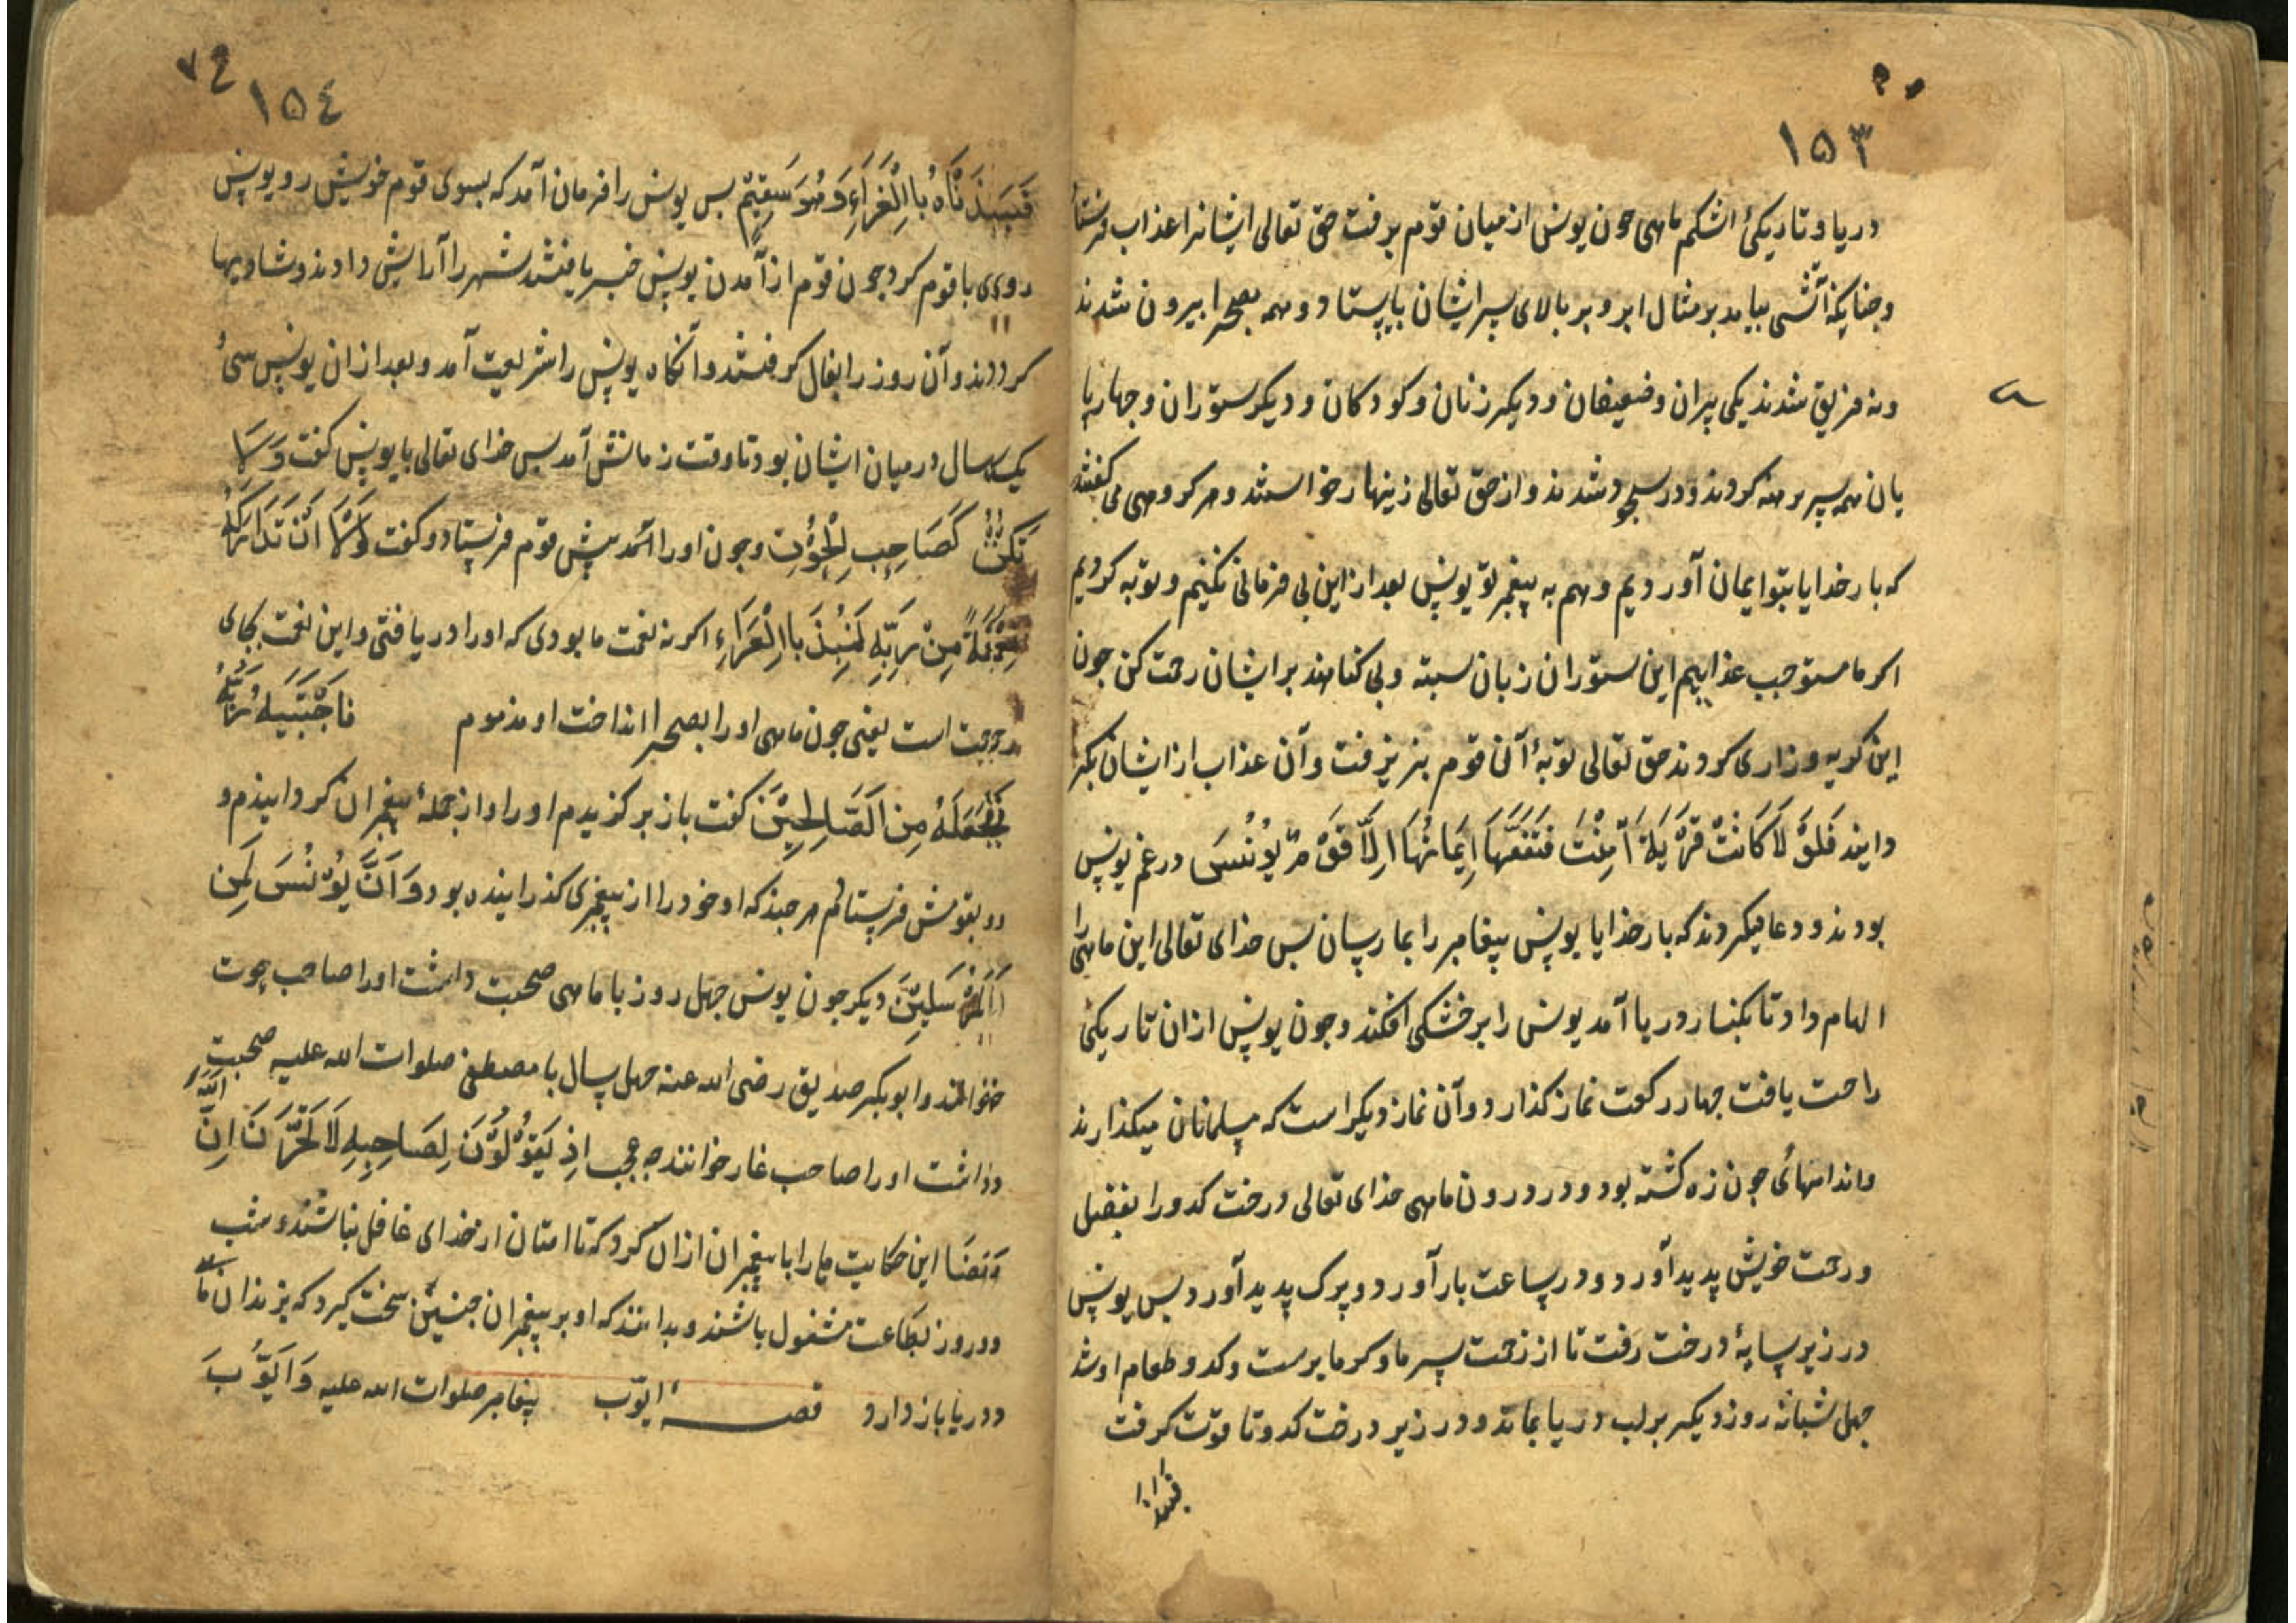 ١٥٣
دریا و تاریکئ اشکم ماهی جون یونس از میان قوم برفت حق تعالی ایشانرا عذاب فرستاد
و جنانکه آتشی بیامد بر مثال ابر و بر بالای سر ایشان بایستاد و همه بصحرا بیرون شدند
و سه فریق شدند یکی پیران و ضعیفان و دیگر زنان و کودکان و دیکر ستوران و جهارپا
یان همه سر برهنه کردند و در سجود شدند و از حق تعالی زینهار خواستند و هر کروهی می کفتند
که بار خدایا بتو ایمان آوردیم و هم به پیغمبر تو یونس بعد ازین بی فرمانی نکنیم و توبه کردیم
اکر ما مستوجب عذابیم این ستوران زبان بسته و بی کناهند بر ایشان رحمت کن جون
این کریه و زاری کردند حق تعالی توبهٔ آن قوم بپذیرفت و آن عذاب از ایشان بکر
دانید فَلَوْ لَا كَانَتْ قَرْيَةٌ آمَنَتْ فَنَفَعَهَا إِيمَانُهَا إِلَّا قَوْمَ يُونُسَ در غم یونس
بودند و دعا میکردند که بار خدایا یونس پیغامبر را بما رسان بس خدای تعالی این ماهی را
الهام داد تا بکنار دریا آمد یونس را بر خشکی افکند و جون یونس ازان تاریکئ
راحت یافت جهار رکعت نماز کذارد و آن نماز دیکر است که مسلمانان میکذارند
و اندامهائ جون زه کشته بود و در درون ماهی خدای تعالی درخت کدو را بفضل
و رحمت خویش پدید آورد و در ساعت بار آورد و برک پدید آورد بس یونس
در زیر سایهٔ درخت رفت تا از زحمت سرما و کرما برست و کدو طعام او شد
جهل شبانه روز دیکر بر لب دریا بماند و در زیر درخت کدو تا قوت کرفت
١٥٤
فَنَبَذْنَاهُ بِالْعَرَاءِ وَهُوَ سَقِيمٌ بس یونس را فرمان آمد که بسوی قوم خویش رو یونس
روی با قوم کرد جون قوم از آمدن یونس خبر یافتند شهر را آرایش دادند و شادیها
کردند و آن روز را بفال کرفتند و آنکاه یونس را شریعت آمد و بعد ازان یونس سئ
یک سال در میان ایشان بود تا وقت زمانش آمد بس خدای تعالی با یونس کفت وَلَا
تَكُنْ كَصَاحِبِ الْحُوتِ و جون او را آمد پیش قوم فرستاد و کفت لَوْلَا أَنْ تَدَارَكَهُ
نِعْمَةٌ مِنْ رَبِّهِ لَنُبِذَ بِالْعَرَاءِ اکر نه نعمت ما بودی که او را دریافتی و این نعمت بجای
رحمت است یعنی جون ماهی او را بصحرا انداخت او مذموم فَاجْتَبَاهُ رَبُّهُ
فَجَعَلَهُ مِنَ الصَّالِحِينَ کفت باز برکزیدم او را و از جملهٔ پیغمبران کردانیدم و
بقومش فرستادم هر جند که او خود را از پیغمبری کذرانیده بود وَ اَنَّ يُونُسَ لَمِنَ
الْمُرْسَلِينَ دیکر جون یونس جهل روز با ماهی صحبت داشت او را صاحب حوت
خواندند و ابوبکر صدیق رضی الله عنه جهل سال با مصطفی صلوات الله علیه صحبت
داشت او را صاحب غار خوانند جه عجب اِذْ يَقُولُ لِصَاحِبِهِ لَا تَحْزَنْ اِنَّ اللّٰهَ
مَعَنَا این حکایت ما را با پیغمبران ازان کرد که تا امتان از خدای غافل نباشند و شب
و روز بطاعت مشغول باشند و بدانند که او بر پیغمبران جنین سخت کیرد که بزندان ما
و دریا باز دارد قصهٔ ایوب پیغامبر صلوات الله علیه وَ اَيُّوبَ